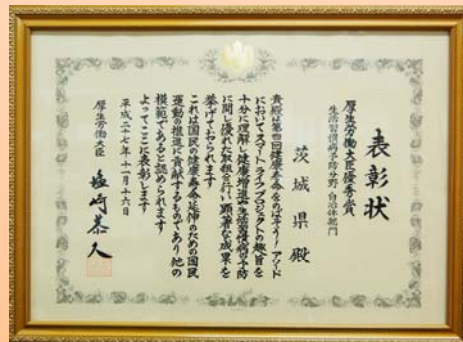 表彰状
厚生労働大臣優秀賞
生活習慣病予防分野 自治体部門
茨城県殿
貴殿は第四回健康寿命をのばそう!アワード
においてスマートライフプロジェクトの趣旨を
十分に理解し健康増進や生活習慣病の予防
に関し優れた取組を行い顕著な成果を
挙げておられます
これは国民の健康寿命延伸のための国民
運動の推進に貢献するものであり他の
模範であると認められます
よってここに表彰します
平成二十七年十一月十六日
厚生労働大臣 塩崎恭久